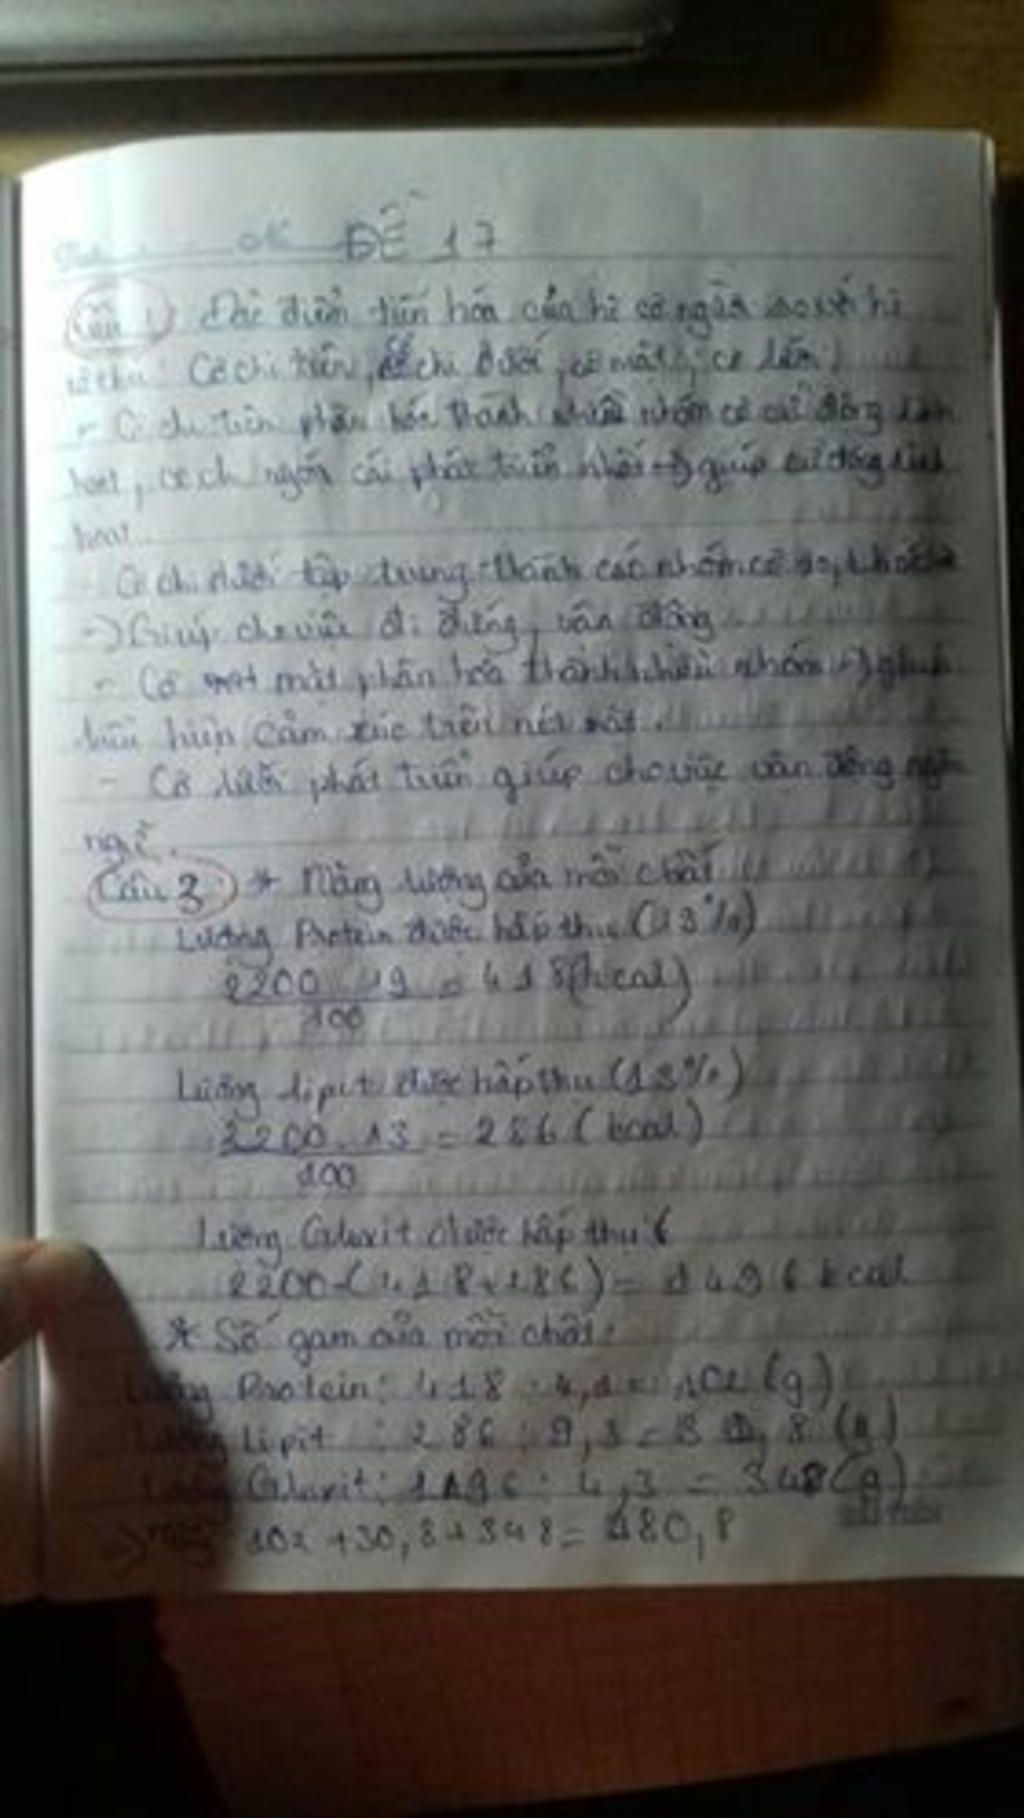 ĐỀ 17
Câu 1: Đặc điểm tiến hóa của hệ cơ người so với hệ
cơ thú: Cơ chi trên, cơ chi dưới, cơ mặt, cơ lưỡi
- Cơ chi trên phân hóa thành nhiều nhóm cơ cử động linh
hoạt, ngón cái phát triển nhất -> giúp cử động linh
hoạt
- Cơ chi dưới tập trung thành các nhóm cơ to, khỏe
-> Giúp cho việc đi đứng, vận động
- Cơ mặt phân hóa thành nhiều nhóm -> giúp
biểu hiện cảm xúc trên nét mặt.
- Cơ lưỡi phát triển giúp cho việc vận động ngôn
ngữ.
Câu 3: * Năng lượng của mỗi chất
Lượng Protein được hấp thu (13%)
2200 . 19 = 418 (kcal)
100
Lượng lipit được hấp thu (13%)
2200 . 13 = 286 (kcal)
100
Lượng Gluxit được hấp thu
2200 - (418 + 286) = 1496 kcal
* Số gam của mỗi chất:
Lượng Protein: 418 : 4,1 = 102 (g)
Lượng Lipit : 286 : 9,3 = 30,8 (g)
Lượng Gluxit: 1496 : 4,3 = 348 (g)
=> 102 + 30,8 + 348 = 480,8